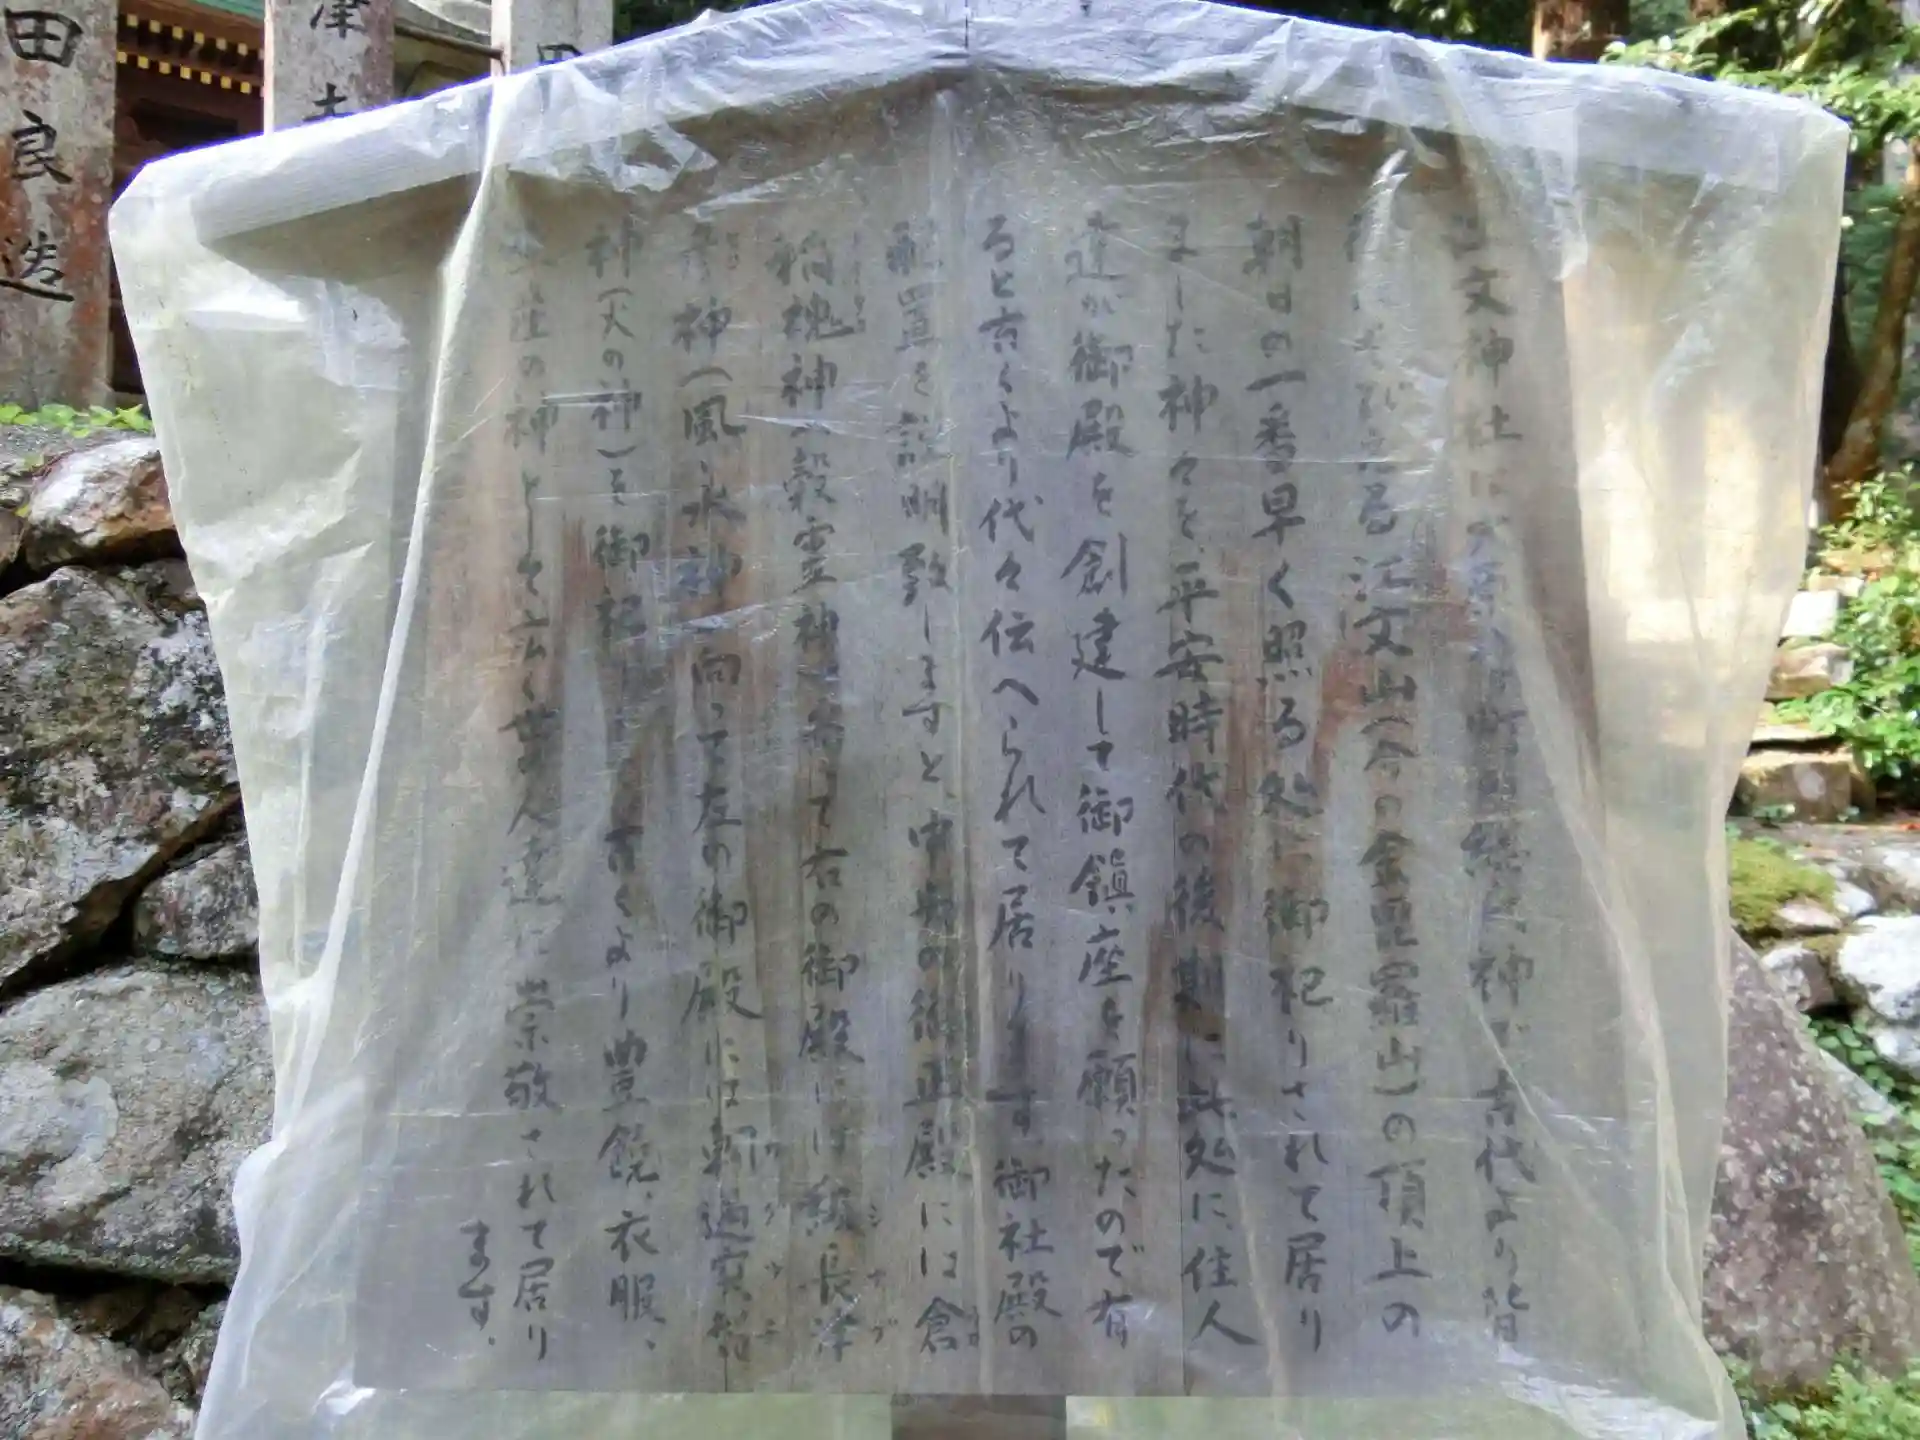 江文神社は大原八ヶ町の総氏神で古代より皆
後にそびえる江文山(今の金毘羅山)の頂上の
朝日の一番早く照る処に御祀りされて居り
ました神々を、平安時代の後期に此処に、住人
達が御殿を創建して御鎮座を願ったので有
ると古くより代々伝へられて居ります御社殿の
配置を説明致しますと、中央の御正殿には倉
稲魂神(穀霊神)右の御殿には級長津
彦神(風、水神)向って左の御殿には軻遇突智
神(火の神)を御祀りし古くより豊饒、衣服、
生産の神として広く世の人達に崇敬されて居り
ます。
シナツ
カグツチ
田良造
津
田